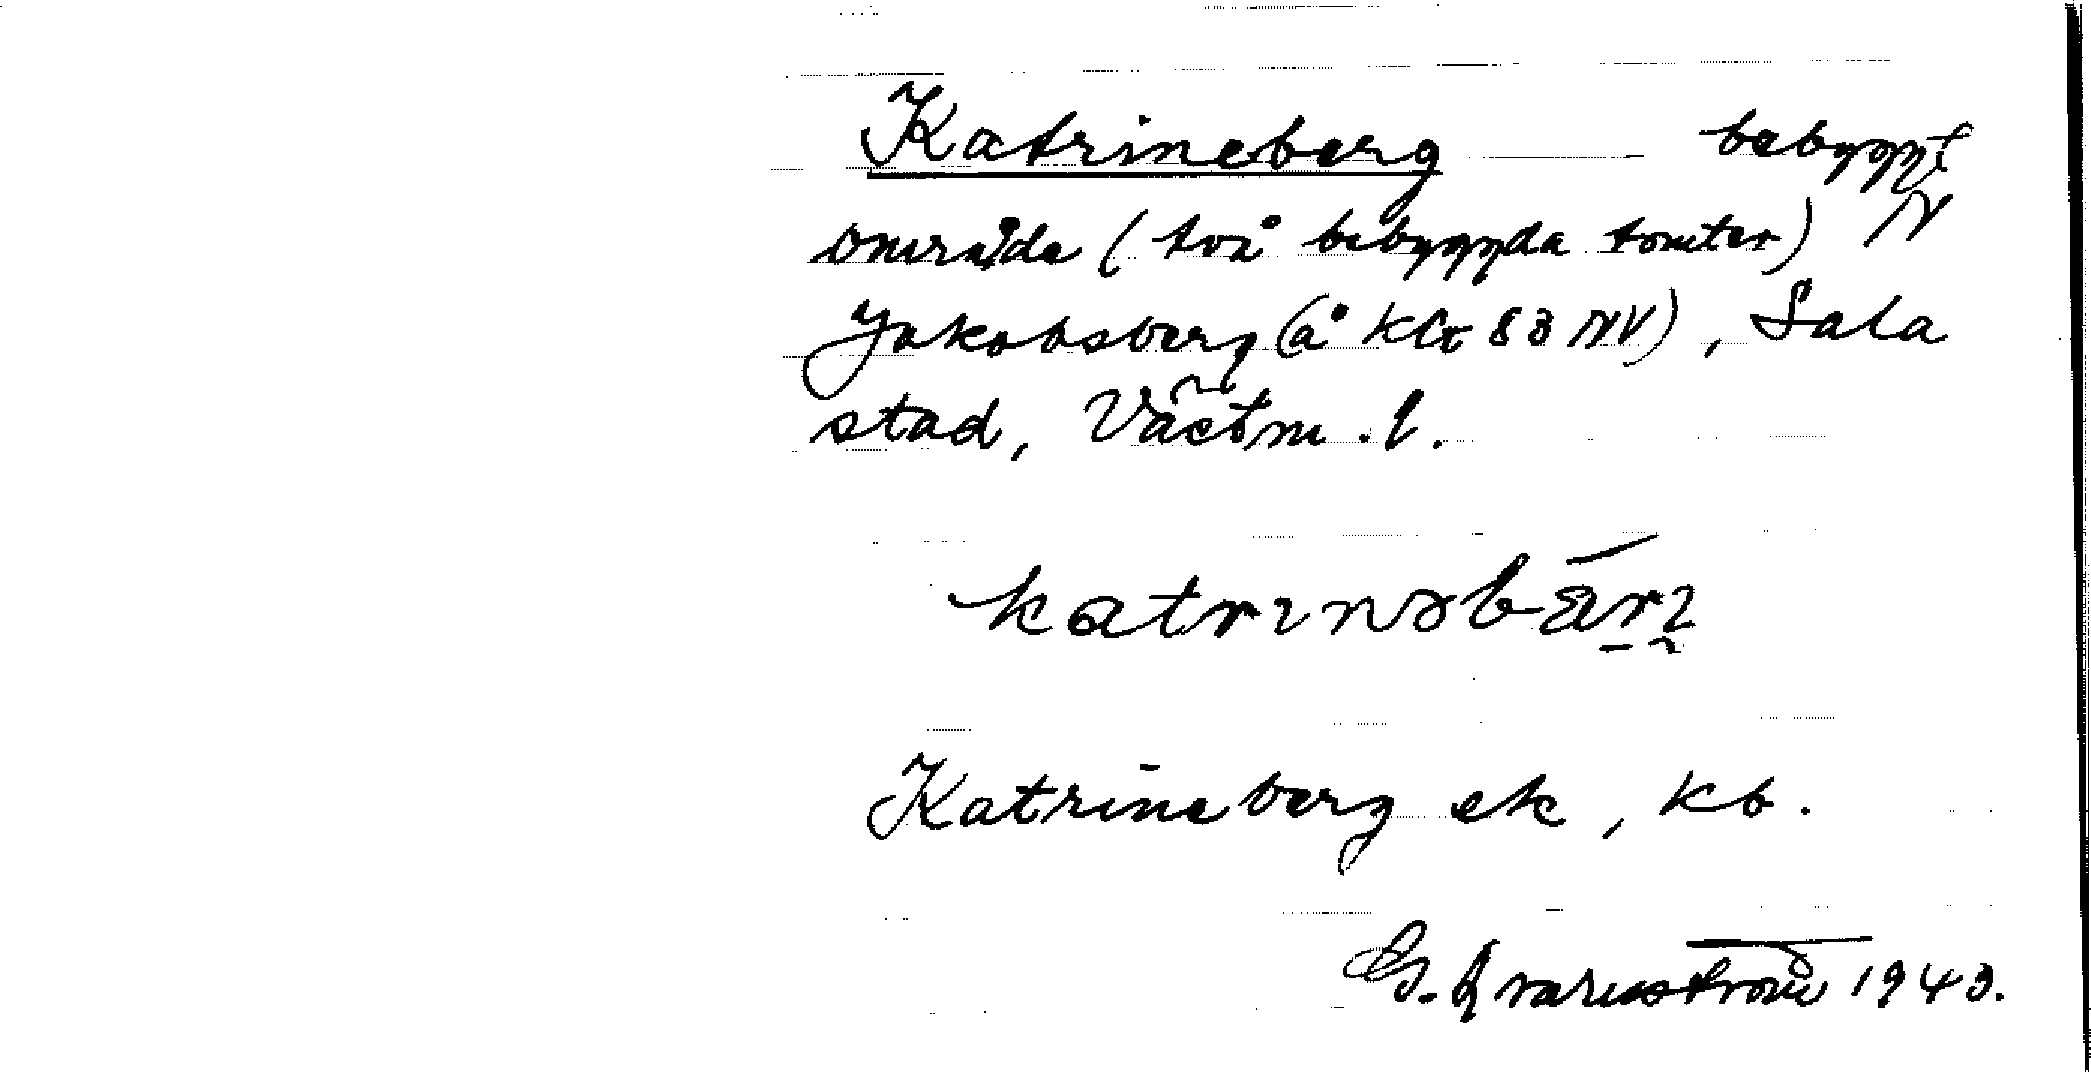 Katrineberg bebyggt
område (två bebyggda tomter) N
Jakobsberg (å kbl 83 NV), Sala
stad, Västm. l.
katrinəbä́rj
Katrineberg ek, kb.
G. Qvarnström 1943.